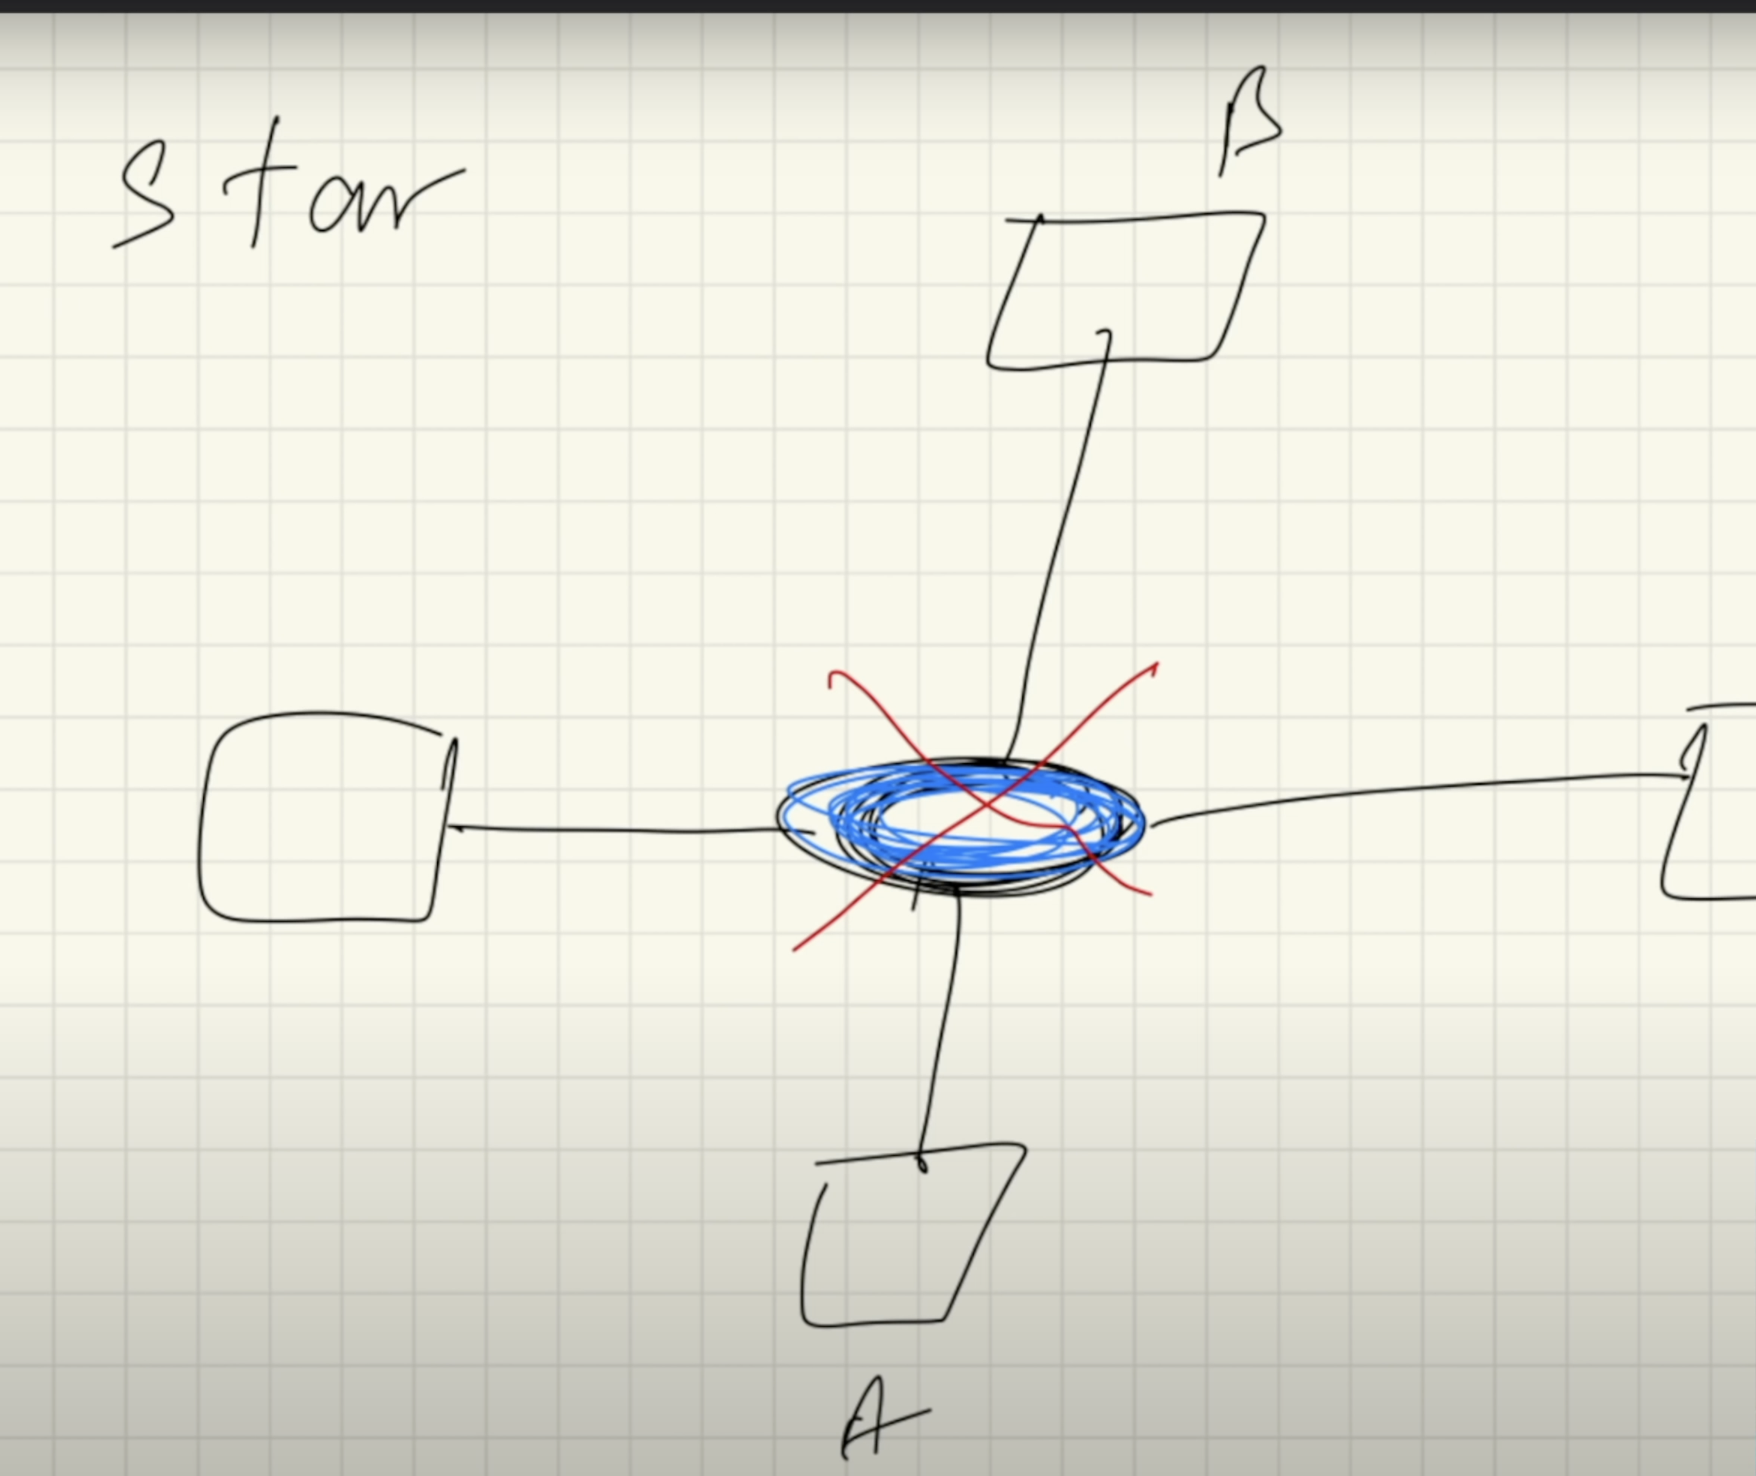 Star
B
A